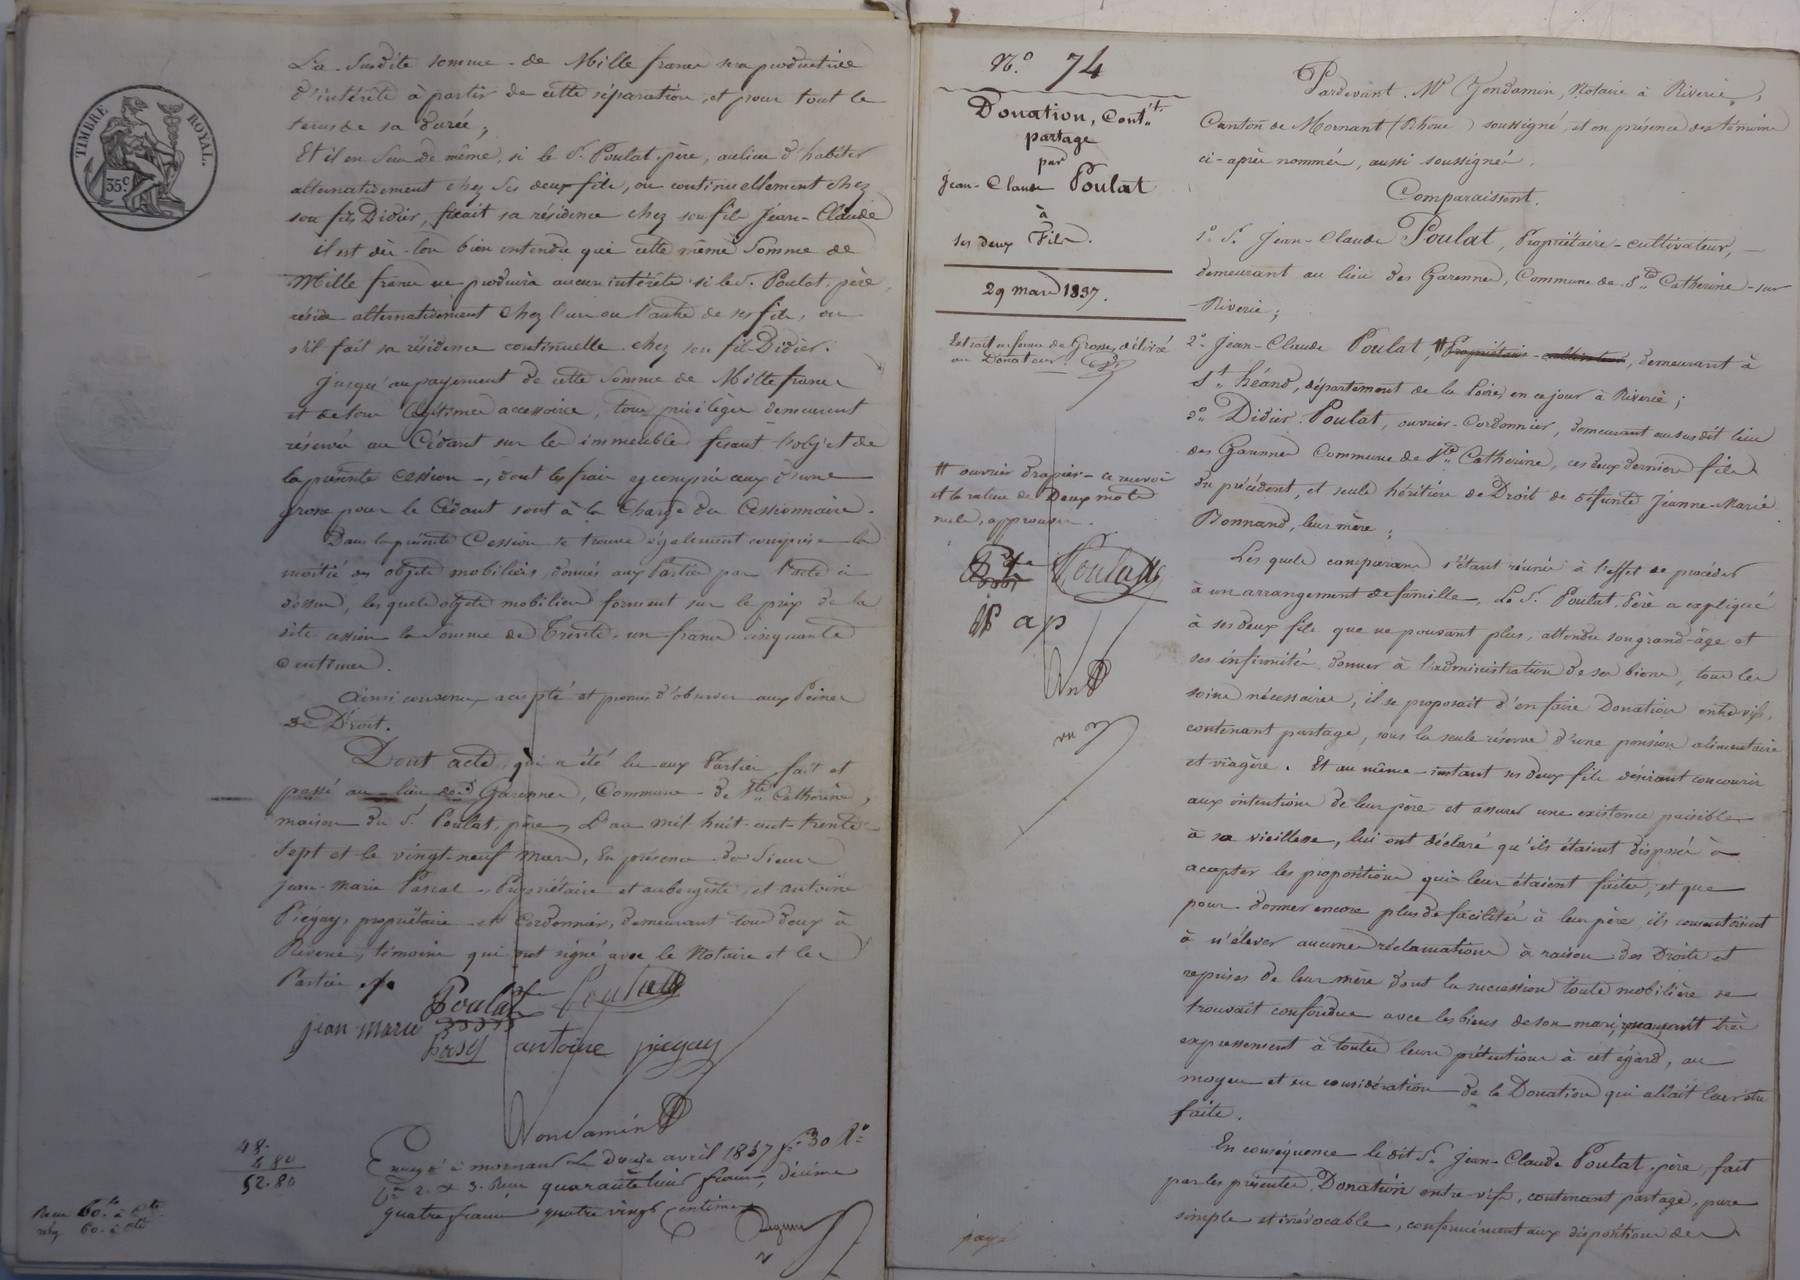 TIMBRE ROYAL.
35c
La Susdite somme de Mille francs sera productive
d'intérêts à partir de cette séparation, et pour tout le
tems de sa durée;
Et il en Sera de même, si le Sr. Poulat, père, aulieu d'habiter
alternativement chez Ses deux fils, ou continuellement chez
son fils Didier, fixait sa résidence chez son fils Jean-Claude
il est dès-lors bien entendu que cette même Somme de
Mille francs ne produira aucun intérêts si le S. Poulat, père,
réside alternativement chez l'un ou l'autre de ses fils, ou
s'il fait sa résidence continuelle chez son fils Didier.
Jusqu'au payement de cette Somme de Mille francs
et de tous légitimes accessoires, tous privilèges demeurent
réservés au Cédant sur les immeubles fesant l'objet de
la présente cession, dont les frais y compris ceux d'une
grosse pour le Cédant sont à la Charge du Cessionnaire.
Dans la présente Cession se trouve également comprise la
moitié des objets mobiliers, donnés aux Parties par l'acte ci
dessus, les quels objets mobiliers forment sur le prix de la
dite cession la Somme de Trente-un francs cinquante
centimes.
Ainsi convenu, accepté et promis d'observer aux Peines
de Droit.
Dont acte, qui a été lu aux Parties, fait et
passé au lieu des Garennes, Commune de Ste. Catherine,
maison du S. Poulat, père, L'an mil huit-cent-trente
Sept et le vingt-neuf Mars, En présence des Sieurs
Jean-Marie Pascal, Propriétaire et aubergiste, et antoine
Piégay, propriétaire et Cordonnier, demeurant tous deux à
Riverie, témoins qui ont signé avec le Notaire et les
Parties.
Poulat Poulat
jean marie antoine piegay
Jondamin
48.
4 80
52.80
Enregé à mornant Le douze avril 1837 fo. 30 Ro
Ces 2 & 3. Reçu quarante huit francs, décime
quatre francs quatre vingt centimes
No. 74
Donation, Contt.
partage
par
Jean-Claude Poulat
à
ses deux Fils.
29 mars 1837.
Extrait en forme de Grosse, délivré
au Donateur.
# ouvrier drapier - ce renvoi
et la rature de Deux mots
nuls, approuvés.
Poulat
ap
payé
Pardevant Me Jondamin, Notaire à Riverie,
Canton de Mornant (Rhône) soussigné, et en présence des témoins
ci-après nommés, aussi soussignés.
Comparaissent.
1o. S. Jean-Claude Poulat, Propriétaire-cultivateur,
demeurant au lieu des Garennes, Commune de Ste. Catherine-sur
Riverie;
2o. Jean-Claude Poulat, # Propriétaire-cultivateur, demeurant à
St. héand, département de la Loire, en ce jour à Riverie;
3o. Didier Poulat, ouvrier-Cordonnier, demeurant au susdit lieu
des Garennes Commune de Ste. Catherine, ces deux derniers fils
du précédent, et seuls héritiers de Droit de défunte Jeanne-Marie
Bonnand, leur mère;
Les quels comparans s'étant réunis à l'effet de procéder
à un arrangement de famille, Le S. Poulat, Père a expliqué
à ses deux fils que ne pouvant plus, attendu son grand-âge et
ses infirmités, donner à l'administration de ses biens, tous les
soins nécessaires, il se proposait d'en faire Donation entre vifs,
contenant partage, sous la seule réserve d'une pension alimentaire
et viagère. Et au même instant ses deux fils désirant concourir
aux intentions de leur père et assurer une existence paisible
à sa vieillesse, lui ont déclaré qu'ils étaient disposés à
accepter les propositions qui leur étaient faites, et que
pour donner encore plus de facilités à leur père, ils consentaient
à n'élever aucunes réclamations à raison des Droits et
reprises de leur mère dont la succession toute mobilière se
trouvait confondue avec les biens de son mari, renonçant très
expressément à toutes leurs prétentions à cet égard, au
moyen et en considération de la Donation qui allait leur être
faite.
En conséquence le dit S. Jean-Claude Poulat, père, fait
par les présentes, Donation entre-vifs, contenant partage, pure
simple et irrévocable, conformément aux dispositions des